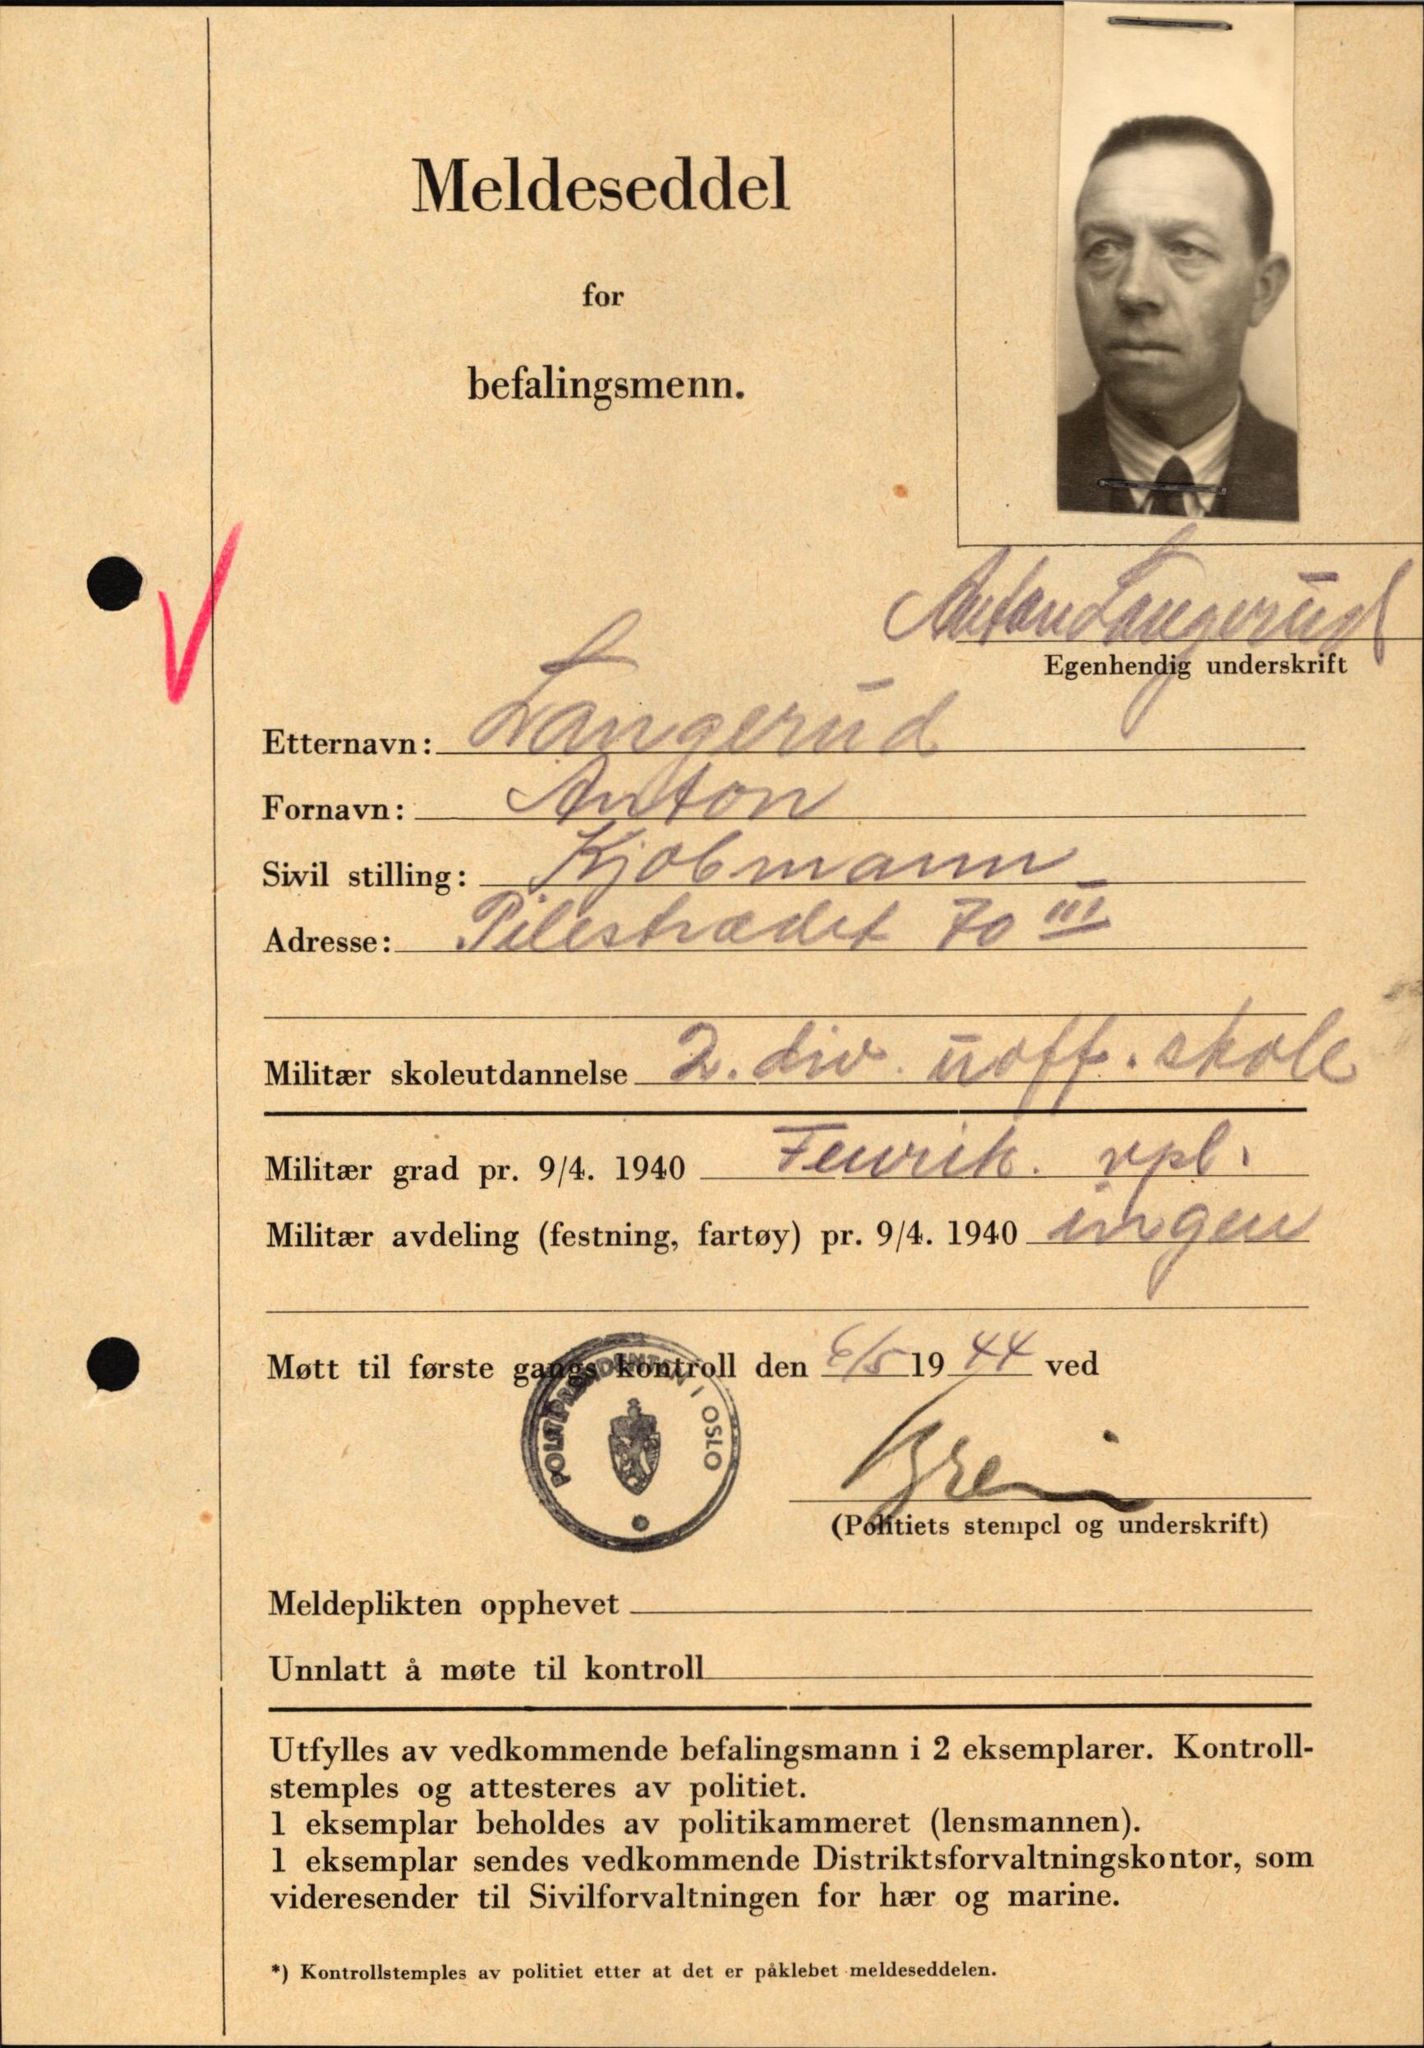 Meldeseddel
for
befalingsmenn.
Anton Langerud
Egenhendig underskrift
Etternavn: Langerud
Fornavn: Anton
Sivil stilling: Kjøbmann
Adresse: Pilestrædet 70 III
Militær skoleutdannelse 2. div. uoff. skole
Militær grad pr. 9/4. 1940 Fenrik. vpl.
Militær avdeling (festning, fartøy) pr. 9/4. 1940 ingen
Møtt til første gangs kontroll den 6/5 1944 ved
POLITIPRESIDENTEN I OSLO
(Politiets stempel og underskrift)
Meldeplikten opphevet
Unnlatt å møte til kontroll
Utfylles av vedkommende befalingsmann i 2 eksemplarer. Kontroll-
stemples og attesteres av politiet.
1 eksemplar beholdes av politikammeret (lensmannen).
1 eksemplar sendes vedkommende Distriktsforvaltningskontor, som
videresender til Sivilforvaltningen for hær og marine.
*) Kontrollstemples av politiet etter at det er påklebet meldeseddelen.